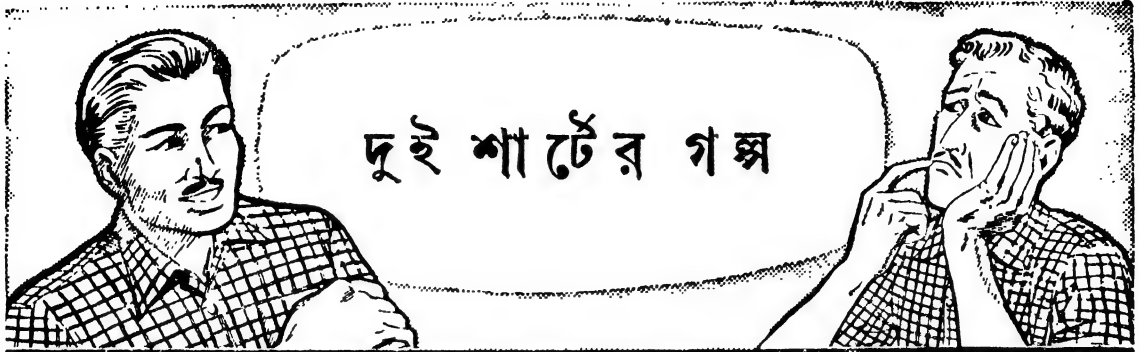 দুই শার্টের গল্প